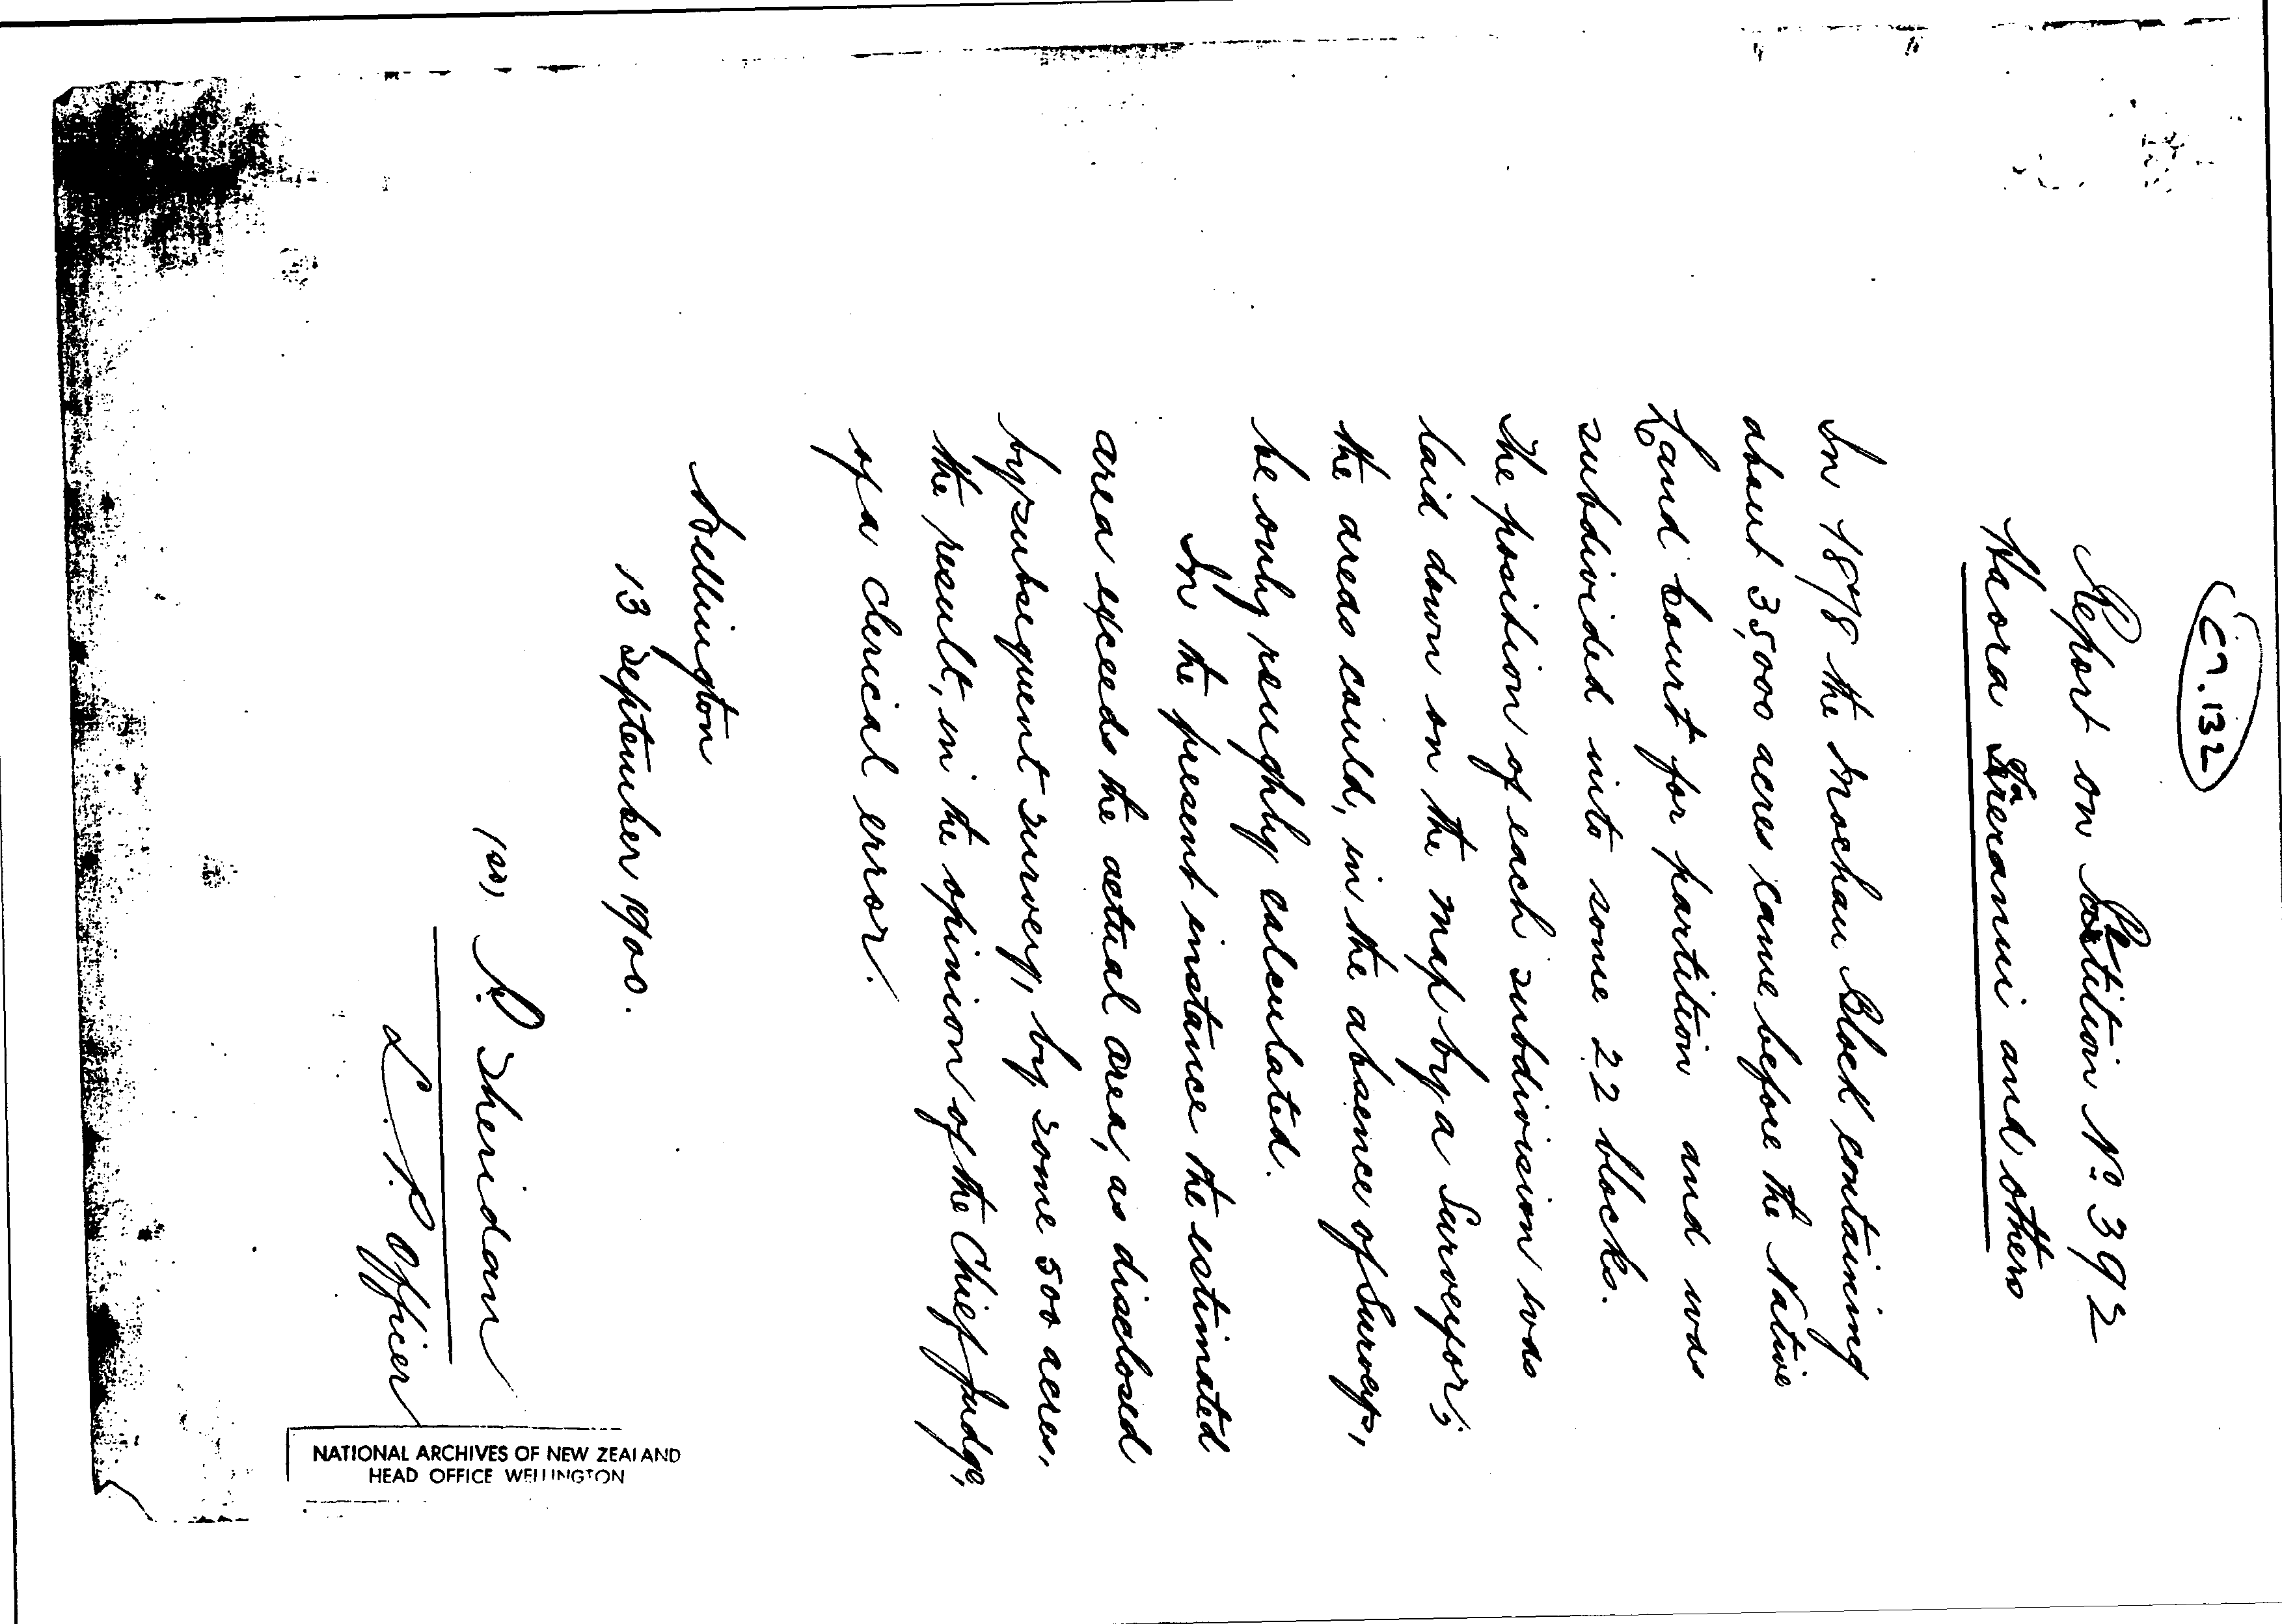 C9.132
Report on Petition No. 392
Haora Tareranui and others
In 1878 the Moehau Block containing
about 35,000 acres came before the Native
Land Court for partition and was
subdivided into some 22 blocks.
The position of each subdivision was
laid down on the map by a Surveyor;
the areas could, in the absence of Surveys,
be only roughly calculated.
In the present instance the estimated
area exceeds the actual area, as disclosed
by subsequent survey, by some 500 acres,
the result, in the opinion of the Chief Judge,
of a clerical error.
Wellington
13 September 1900.
P. Sheridan
L. P. Officer
NATIONAL ARCHIVES OF NEW ZEALAND
HEAD OFFICE WELLINGTON